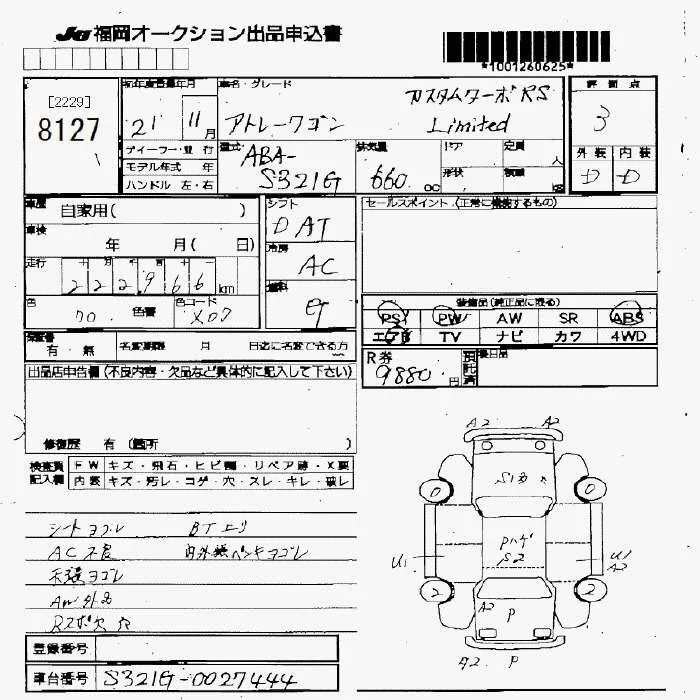 JU福岡オークション出品申込書
*1001260625*
[2229]
8127
初年度登録年月
21 11月
車名・グレード
アトレーワゴン
カスタムターボRS
Limited
評価点
3
外装 内装
D D
ディーラー・並行
モデル年式 年
ハンドル 左・右
型式
ABA-
S321G
排気量
660 CC
ドア
形状
定員 人
積載 kg
車歴
自家用( )
車検
年 月( 日)
走行 十 万 千 百
222966km
色
色替
色コード
X07
シフト
DAT
冷房
AC
燃料
セールスポイント (正常に機能するもの)
装備品(純正品に限る)
PS PW AW SR ABS
エアB TV ナビ カワ 4WD
保証書
有・無
名変期限 月 日迄に名変できる方
R券
9880円
預託済
後日品
出品店申告欄(不良内容・欠品など具体的に記入して下さい)
修復歴 有(箇所 )
検査員記入欄
FW キズ・飛石・ヒビ割・リペア跡・X要
内装 キズ・汚レ・コゲ・穴・スレ・キレ・破レ
シートヨゴレ BTエリ
AC不良
天張ヨゴレ
AW外品
A2 A2
O O
U1 Pハゲ U1
S2 A2
2 2
A2 P
A2 P
登録番号
車台番号 S321G-0027444